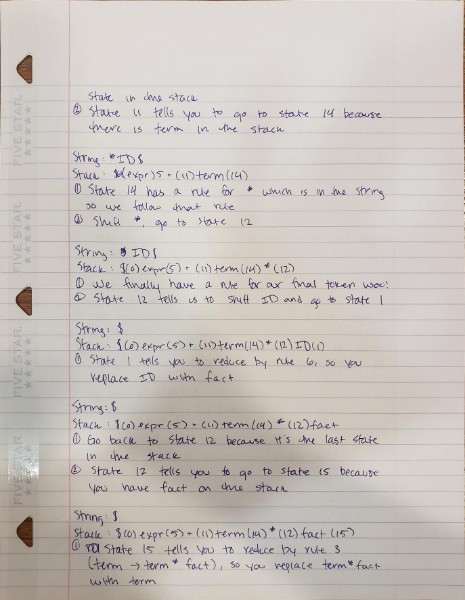 state in the stack
② State 11 tells you to go to state 14 because
there is term in the stack
String: * ID $
Stack: $(expr)5 + (11) term (14)
① State 14 has a rule for * which is in the string
so we follow that rule
② Shift *, go to state 12
String: ID $
Stack: $(0) expr(5) + (11) term (14) * (12)
① We finally have a rule for our final token woo!
② State 12 tells us to shift ID and go to state 1
String: $
Stack: $(0) expr(5) + (11) term (14) * (12) ID (1)
① State 1 tells you to reduce by rule 6, so you
replace ID with fact
String: $
Stack: $(0) expr(5) + (11) term (14) * (12) fact
① Go back to state 12 because it's the last state
in the stack
② State 12 tells you to go to state 15 because
you have fact on the stack
String: $
Stack: $(0) expr(5) + (11) term (14) * (12) fact (15)
① State 15 tells you to reduce by rule 3
(term → term * fact), so you replace term * fact
with term
FIVE STAR
FIVE STAR
FIVE STAR